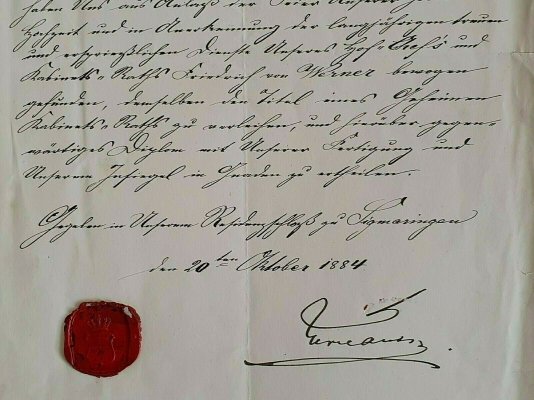 haben Uns aus Anlaß der Feier Unserer
Hochzeit und in Anerkennung der langjährigen treuen
und ersprießlichen Dienste Unseres Hof- und
Kabinets-Raths Friedrich von Werner bewogen
gefunden, demselben den Titel eines Geheimen
Kabinets-Raths zu verleihen, und hierüber gegen-
wärtiges Diplom mit Unserer Fertigung und
Unserem Insiegel in Gnaden zu ertheilen.
Gegeben in Unserem Residenzschloß zu Sigmaringen
den 20ten Oktober 1884